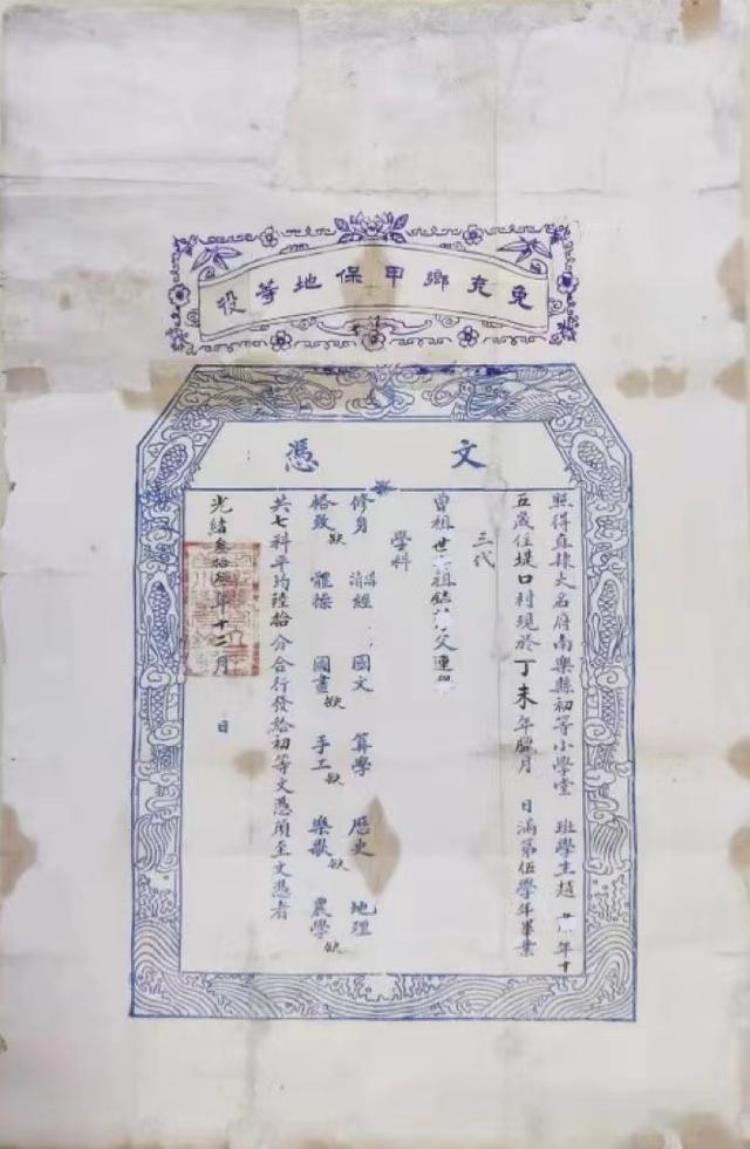 免充鄉甲保地等役
文憑
照得直隸大名府南樂縣初等小學堂 班學生趙 年十
五歲住堤口村現於丁未年臘月 日滿第伍學年畢業
三代
曾祖世 祖 父連
學科
修身 讀經 國文 算學 歷史 地理
格致缺 體操 圖畫缺 手工缺 樂歌缺 農學缺
共七科平均陸拾分合行發給初等文憑須至文憑者
光緒叁拾 年十二月 日